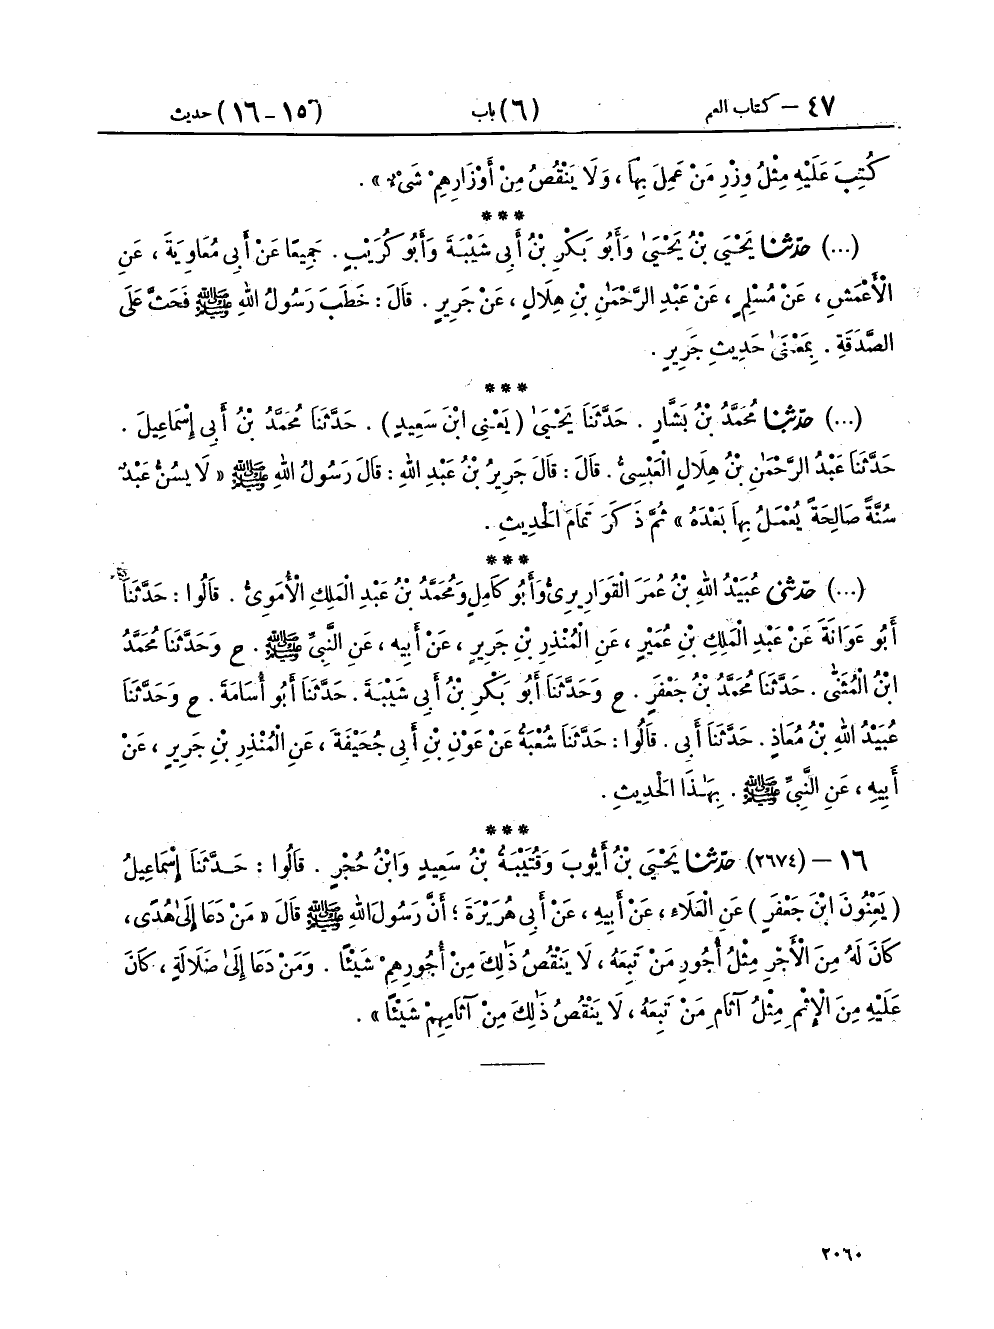 ٤٧ – كتاب العلم (٦) باب (١٥–١٦) حديث
كُتِبَ عَلَيْهِ مِثْلُ وِزْرِ مَنْ عَمِلَ بِهَا ، وَلَا يَنْقُصُ مِنْ أَوْزَارِهِمْ شَىْءٌ » .
***
(...) حدّثنا يَحْيَى بْنُ يَحْيَىٰ وَأَبُو بَكْرِ بْنُ أَبِى شَيْبَةَ وَأَبُو كُرَيْبٍ . جَمِيعًا عَنْ أَبِى مُعَاوِيَةَ ، عَنِ
الْأَعْمَشِ ، عَنْ مُسْلِمٍ ، عَنْ عَبْدِ الرَّحْمَٰنِ بْنِ هِلَالٍ ، عَنْ جَرِيرٍ . قَالَ : خَطَبَ رَسُولُ اللهِ ﷺ فَحَثَّ عَلَى
الصَّدَقَةِ . بِمَعْنَىٰ حَدِيثِ جَرِيرٍ .
***
(...) حدّثنا مُحَمَّدُ بْنُ بَشَّارٍ . حَدَّثَنَا يَحْيَىٰ ( يَعْنِى ابْنَ سَعِيدٍ ) . حَدَّثَنَا مُحَمَّدُ بْنُ أَبِى إِسْمَاعِيلَ .
حَدَّثَنَا عَبْدُ الرَّحْمَٰنِ بْنُ هِلَالٍ الْعَبْسِىُّ . قَالَ : قَالَ جَرِيرُ بْنُ عَبْدِ اللهِ : قَالَ رَسُولُ اللهِ ﷺ « لَا يَسُنُّ عَبْدٌ
سُنَّةً صَالِحَةً يُعْمَلُ بِهَا بَعْدَهُ » ثُمَّ ذَكَرَ تَمَامَ الْحَدِيثِ .
***
(...) حدّثنى عُبَيْدُ اللهِ بْنُ عُمَرَ الْقَوَارِيرِىُّ وَأَبُو كَامِلٍ وَمُحَمَّدُ بْنُ عَبْدِ الْمَلِكِ الْأُمَوِىُّ . قَالُوا : حَدَّثَنَا
أَبُو عَوَانَةَ عَنْ عَبْدِ الْمَلِكِ بْنِ عُمَيْرٍ ، عَنِ الْمُنْذِرِ بْنِ جَرِيرٍ ، عَنْ أَبِيهِ ، عَنِ النَّبِىِّ ﷺ . ح وَحَدَّثَنَا مُحَمَّدُ
ابْنُ الْمُثَنَّىٰ . حَدَّثَنَا مُحَمَّدُ بْنُ جَعْفَرٍ . ح وَحَدَّثَنَا أَبُو بَكْرِ بْنُ أَبِى شَيْبَةَ . حَدَّثَنَا أَبُو أُسَامَةَ . ح وَحَدَّثَنَا
عُبَيْدُ اللهِ بْنُ مُعَاذٍ . حَدَّثَنَا أَبِى . قَالُوا : حَدَّثَنَا شُعْبَةُ عَنْ عَوْنِ بْنِ أَبِى جُحَيْفَةَ ، عَنِ الْمُنْذِرِ بْنِ جَرِيرٍ ، عَنْ
أَبِيهِ ، عَنِ النَّبِىِّ ﷺ . بِهَٰذَا الْحَدِيثِ .
***
١٦ – (٢٦٧٤) حدّثنا يَحْيَىٰ بْنُ أَيُّوبَ وَقُتَيْبَةُ بْنُ سَعِيدٍ وَابْنُ حُجْرٍ . قَالُوا : حَدَّثَنَا إِسْمَاعِيلُ
( يَعْنُونَ ابْنَ جَعْفَرٍ ) عَنِ الْعَلَاءِ ، عَنْ أَبِيهِ ، عَنْ أَبِى هُرَيْرَةَ ؛ أَنَّ رَسُولَ اللهِ ﷺ قَالَ « مَنْ دَعَا إِلَىٰ هُدًى ،
كَانَ لَهُ مِنَ الْأَجْرِ مِثْلُ أُجُورِ مَنْ تَبِعَهُ ، لَا يَنْقُصُ ذَٰلِكَ مِنْ أُجُورِهِمْ شَيْئًا . وَمَنْ دَعَا إِلَىٰ ضَلَالَةٍ ، كَانَ
عَلَيْهِ مِنَ الْإِثْمِ مِثْلُ آثَامِ مَنْ تَبِعَهُ ، لَا يَنْقُصُ ذَٰلِكَ مِنْ آثَامِهِمْ شَيْئًا » .
٢٠٦٠